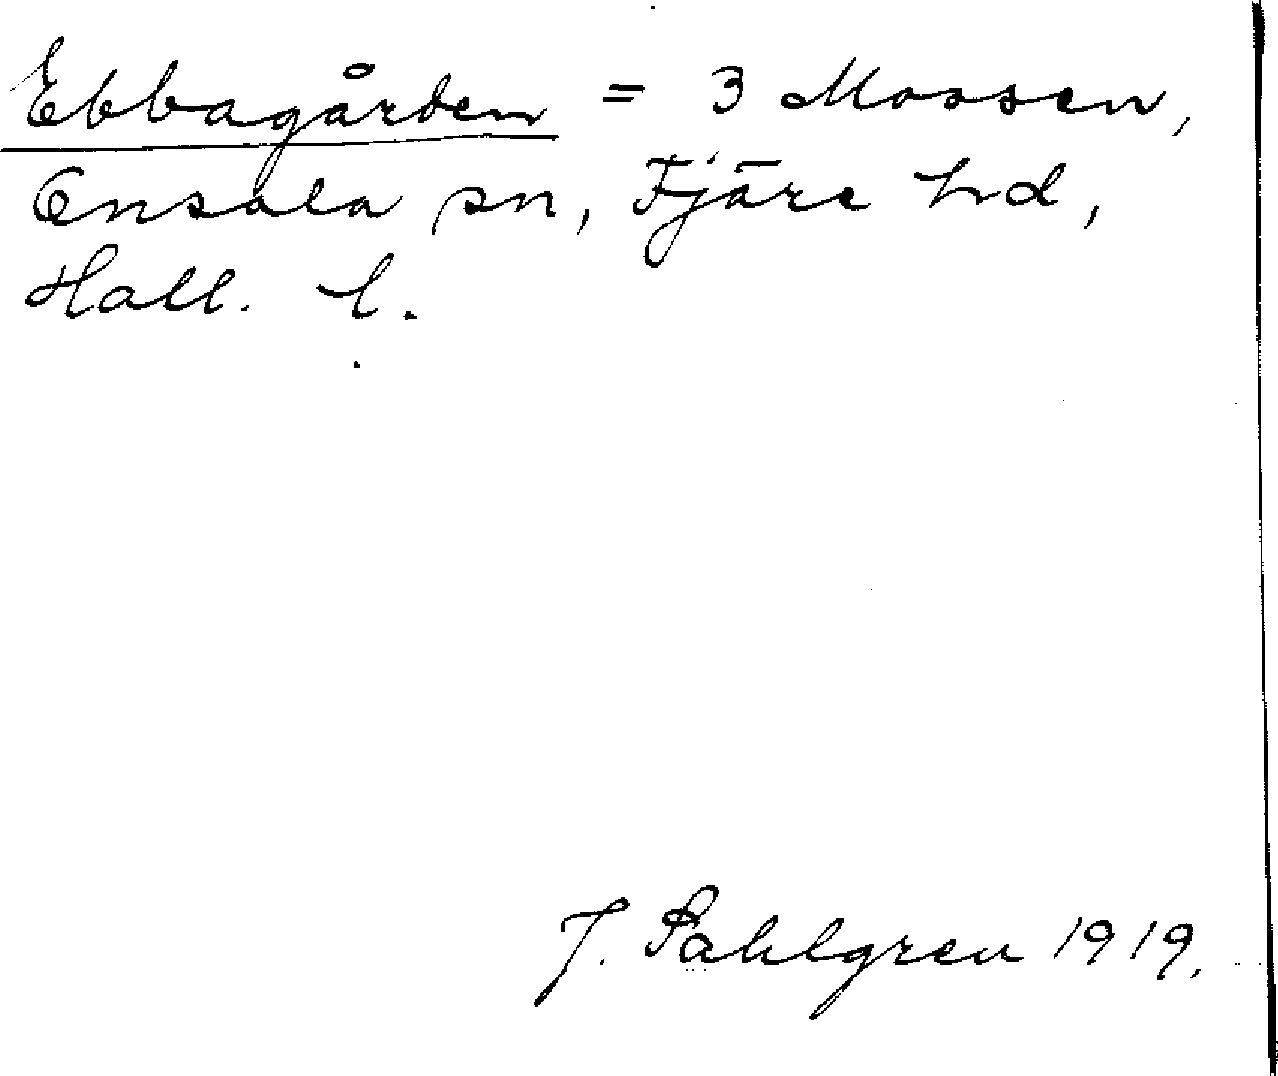 Ebbagården = 3 Mossen,
Onsala sn, Fjäre hd,
Hall. l.
J. Sahlgren 1919.